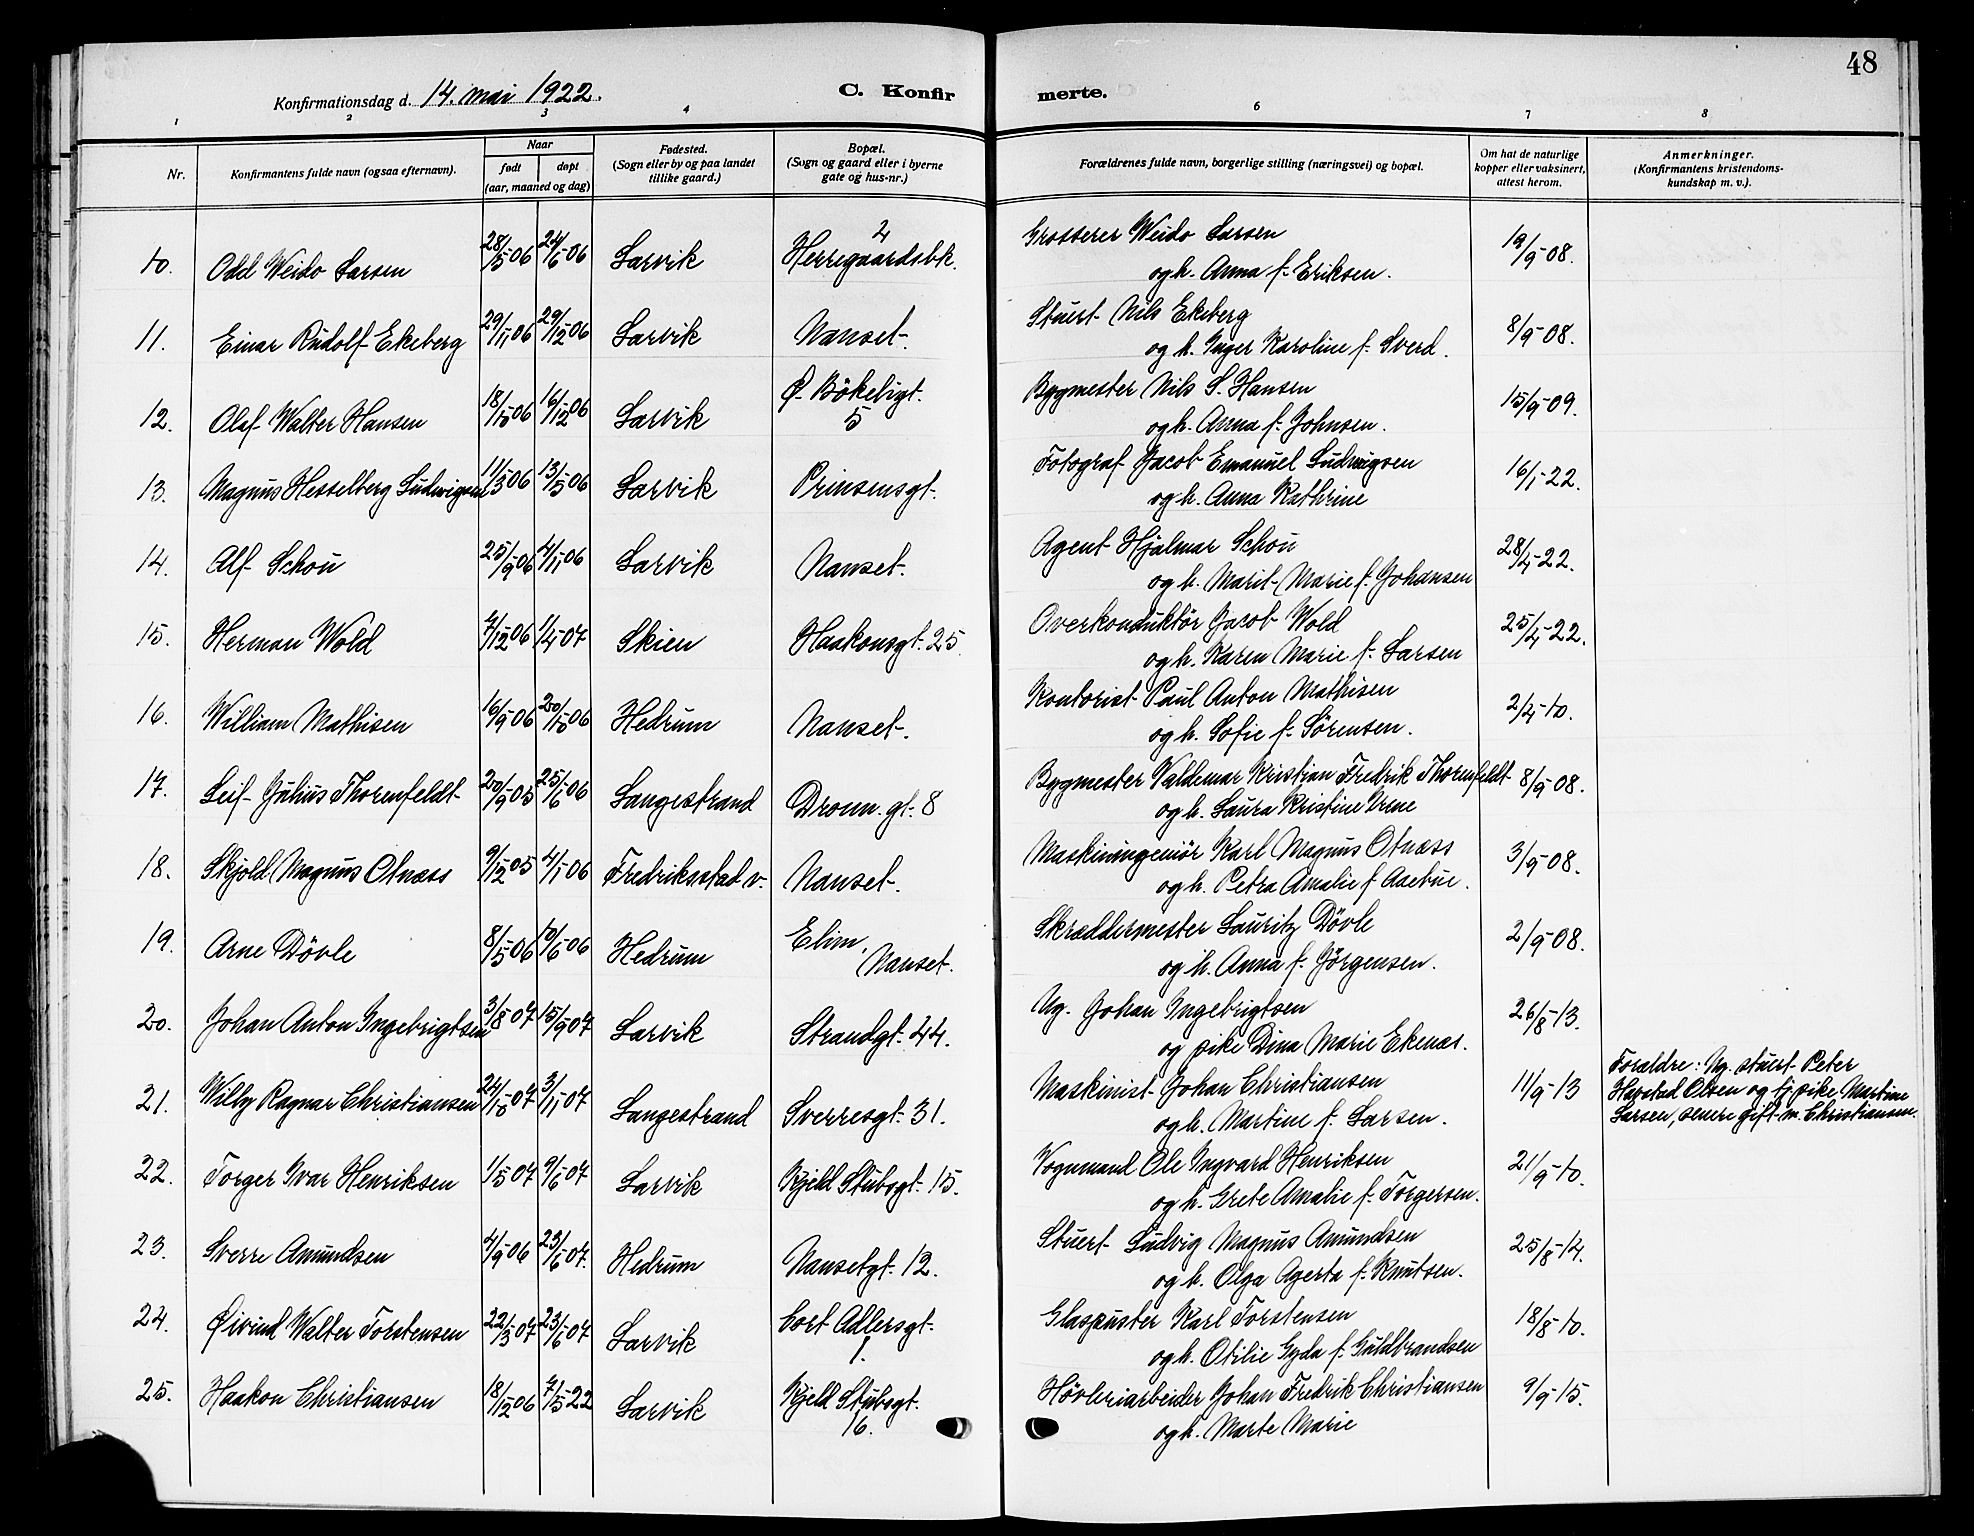 48
Konfirmationsdag d. 14. mai 1922.
C. Konfir merte.
1 2 3 4 6 7 8
Nr.
Konfirmantens fulde navn (ogsaa efternavn).
Naar
født døpt
(aar, maaned og dag)
Fødested.
(Sogn eller by og paa landet
tillike gaard.)
Bopæl.
(Sogn og gaard eller i byerne
gate og hus-nr.)
Forældrenes fulde navn, borgerlige stilling (næringsvei) og bopæl.
Om hat de naturlige
kopper eller vaksinert,
attest herom.
Anmerkninger.
(Konfirmantens kristendoms-
kundskap m. v.).
10. Odd Weido Larsen 28/5-06 24/6-06 Larvik Herregaardsbk. 2 Grosserer Weido Larsen 19/9-08.
og h. Anna f. Eriksen.
11. Einar Rudolf Ekeberg 29/11-06 29/12-06 Larvik Nanset. Stuert Nils Ekeberg 8/9-08.
og h. Inger Karoline f. Sverd.
12. Olaf Walter Hansen 18/10-06 16/12-06 Larvik Ø. Bökeligt. 5 Bygmester Nils S. Hansen 15/9-09.
og h. Anna f. Johnsen.
13. Magnus Hesselberg Ludwigsen 11/3-06 13/5-06 Larvik Prinsensgt. Fotograf Jacob Emanuel Ludwigsen 16/1-22.
og h. Anna Kathrine
14. Alf Schou 25/9-06 4/11-06 Larvik Nanset. Agent Hjalmar Schou 28/4-22.
og h. Marit Marie f. Johansen
15. Herman Wold 7/12-06 1/4-07 Skien Haakonsgt. 25. Overkonduktör Jacob Wold 25/4-22.
og h. Karen Marie f. Larsen
16. William Mathisen 16/9-06 20/10-06 Hedrum Nanset. Kontorist Paul Anton Mathisen 2/4-10.
og h. Sofie f. Sörensen.
17. Leif Julius Thorenfeldt 20/9-05 25/6-06 Langestrand Dronn. gt. 8 Bygmester Valdemar Kristian Fredrik Thorenfeldt 8/9-08.
og h. Laura Kristine Irene
18. Skjold Magnus Otnæss 9/12-05 4/1-06 Fredriksstad v. Nanset. Maskiningeniör Karl Magnus Otnæss 3/9-08.
og h. Petra Amalie f. Aasebue.
19. Arne Dövle 8/5-06 10/6-06 Hedrum Elim, Nanset. Skræddermester Lauritz Dövle 2/9-08.
og h. Anna f. Jörgensen.
20. Johan Anton Ingebrigtsen 3/8-07 15/9-07 Larvik Strandgt. 44. Ug. Johan Ingebrigtsen 26/8-13.
og pike Dina Marie Ekenæs.
21. Willy Ragnar Christiansen 24/10-07 3/11-07 Langestrand Sverresgt. 31. Maskinist Johan Christiansen 11/9-13
og h. Martine f. Larsen.
Foraldre: Ug. stuert Peter
Havstad Olsen og tj. pike Martine
Larsen, senere gift m. Christiansen.
22. Torger Ivar Henriksen 1/5-07 9/6-07 Larvik Kjeld Stubsgt. 15. Vognmand Ole Ingvard Henriksen 21/9-10.
og h. Grete Amalie f. Torgersen.
23. Sverre Amundsen 4/9-06 23/6-07. Hedrum Nansetgt. 12. Stuert Ludvig Magnus Amundsen 25/8-14.
og h. Olga Agerta f. Knutsen.
24. Øivind Walter Torstensen 22/3-07 23/6-07 Larvik Cort Adlersgt. 1. Glaspuster Karl Torstensen 18/8-10.
og h. Otilie Gyda f. Guldbrandsen
25. Haakon Christiansen 18/12-06 7/5-22 Larvik Kjeld Stubsgt. 16. Hövleriarbeider Johan Fredrik Christiansen 9/9-15.
og h. Marte Marie